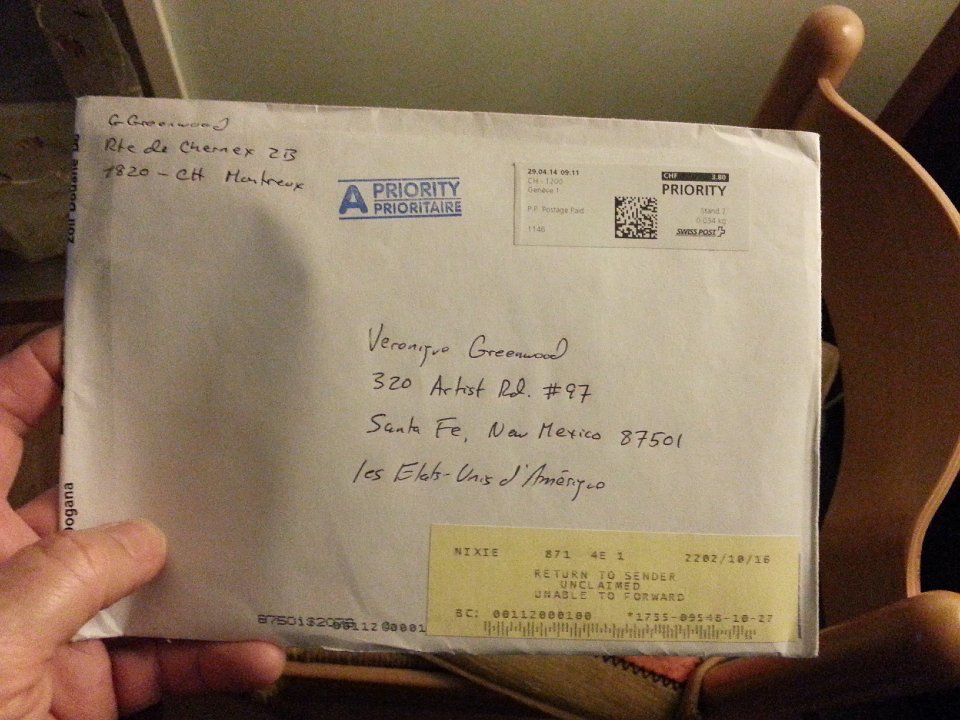 G Greenwood
Rte de Chernex 2B
1820 - CH Montreux
A PRIORITY
PRIORITAIRE
29.04.14 09:11
CH - 1200
Genève 1
P.P. Postage Paid
1146
CHF 3.80
PRIORITY
Stand 7
0.034 kg
SWISS POST
Zoll Douane
Veronique Greenwood
320 Artist Rd. #97
Santa Fe, New Mexico 87501
les Etats-Unis d'Amérique
Dogana
NIXIE 871 4E 1 2202/10/16
RETURN TO SENDER
UNCLAIMED
UNABLE TO FORWARD
BC: 00112000100 *1755-09548-10-27